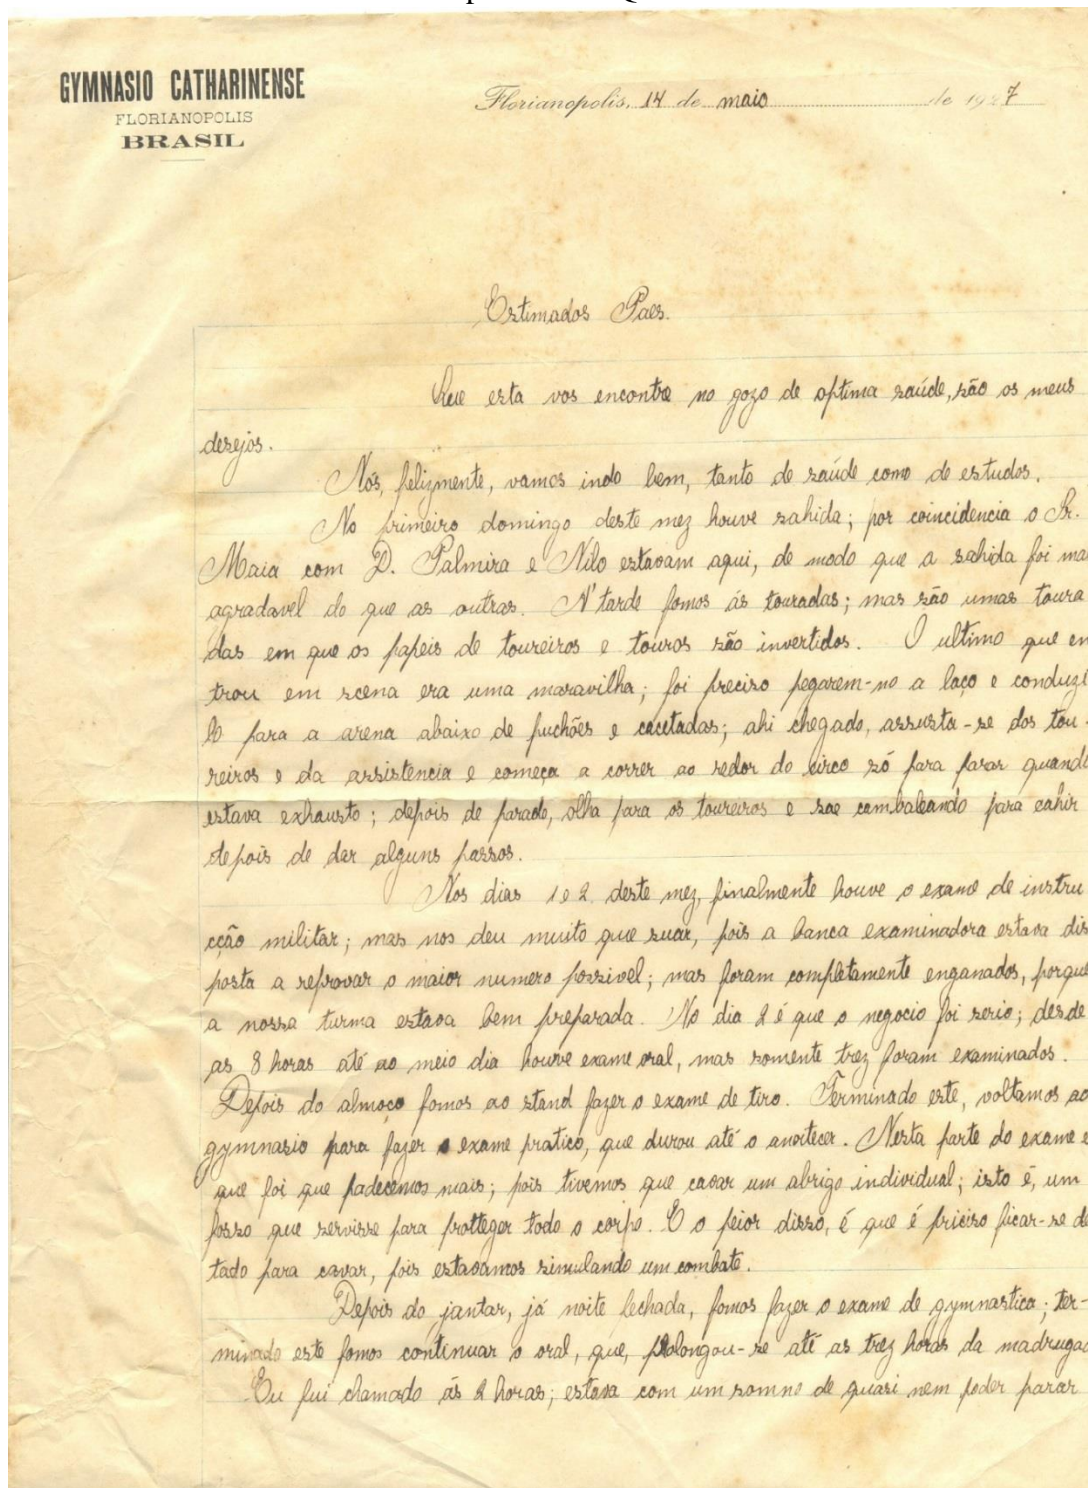 GYMNASIO CATHARINENSE
FLORIANOPOLIS
BRASIL
Florianopolis, 14 de maio de 1927
Estimados Paes.
Que esta vos encontre no gozo de optima saúde, são os meus
desejos.
Nós, felizmente, vamos indo bem, tanto de saúde como de estudos.
No primeiro domingo deste mez houve sahida; por coincidencia o Sr.
Maia com D. Palmira e Nilo estavam aqui, de modo que a sahida foi ma
agradavel do que as outras. A' tarde fomos ás touradas; mas são umas toura
das em que os papeis de toureiros e touros são invertidos. O ultimo que en
trou em scena era uma maravilha; foi preciso pegarem-no a laço e conduzi
lo para a arena abaixo de puchões e cacetadas; ahi chegado, assusta-se dos tou-
reiros e da assistencia e começa a correr ao redor do circo só para parar quando
estava exhausto; depois de parado, olha para os toureiros e sae cambaleando para cahir
depois de dar alguns passos.
Nos dias 1 e 2 deste mez, finalmente houve o exame de instru
cção militar; mas nos deu muito que suar, pois a banca examinadora estava dis
posta a reprovar o maior numero possivel; mas foram completamente enganados, porque
a nossa turma estava bem preparada. No dia 2 é que o negocio foi serio; desde
as 8 horas até ao meio dia houve exame oral, mas somente trez foram examinados.
Depois do almoço fomos ao stand fazer o exame de tiro. Terminado este, voltamos ao
gymnasio para fazer o exame pratico, que durou até o anoitecer. Nesta parte do exame e
que foi que padecemos mais; pois tivemos que cavar um abrigo individual; isto é, um
fosso que servisse para protteger todo o corpo. E o peior disso, é que é priciso ficar-se de
tado para cavar, pois estavamos simulando um combate.
Depois do jantar, já noite fechada, fomos fazer o exame de gymnastica; ter-
minado este fomos continuar o oral, que, prolongou-se até as trez horas da madrugad
Eu fui chamado ás 2 horas; estava com um somno de quasi nem poder parar